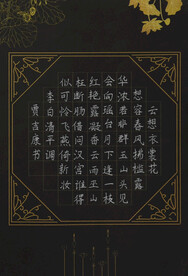 云想衣裳花
想容春风拂槛露
华浓若非群玉山头见
会向瑶台月下逢一枝
红艳露凝香云雨巫山
枉断肠借问汉宫谁得
似可怜飞燕倚新妆
李白清平调
贾吉康书